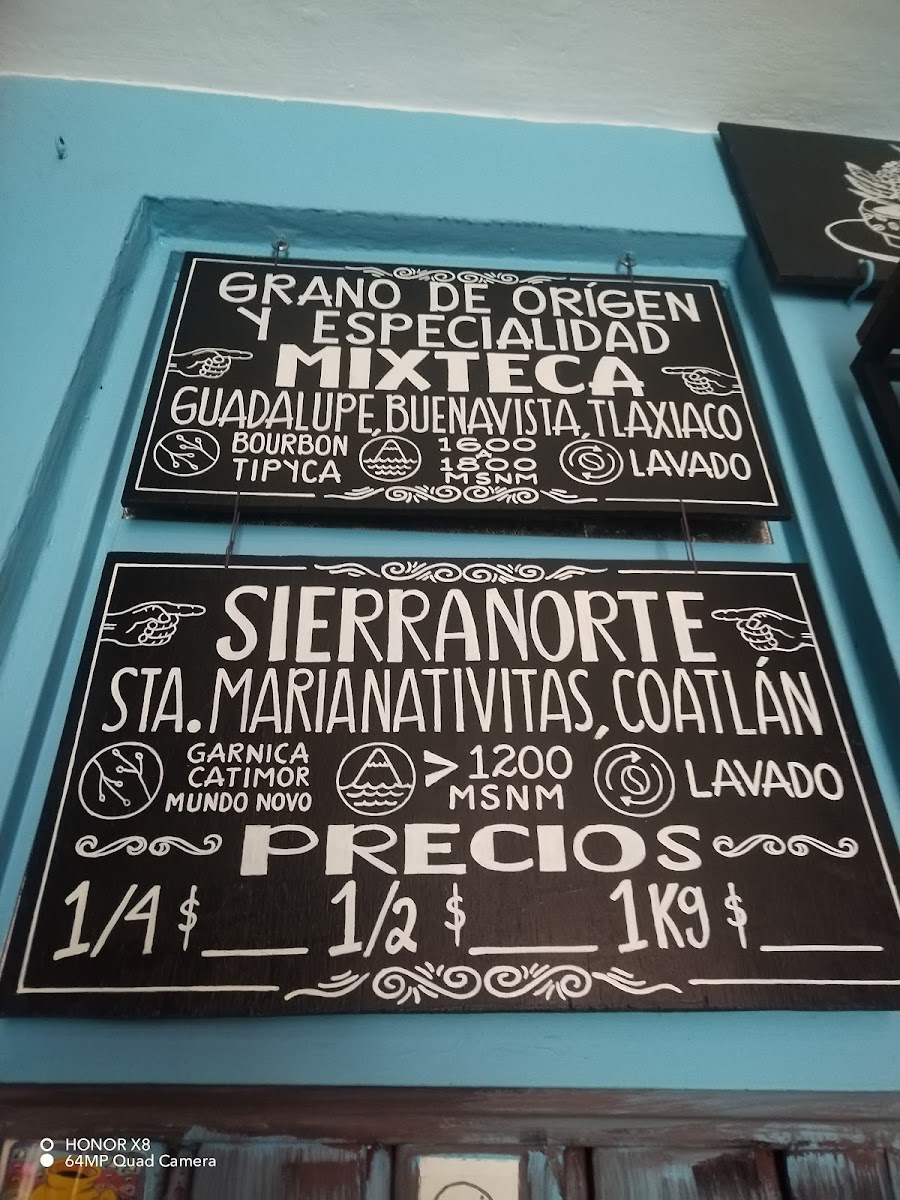 GRANO DE ORÍGEN
Y ESPECIALIDAD
MIXTECA
GUADALUPE, BUENAVISTA, TLAXIACO
BOURBON
TIPYCA
1600
A
1800
MSNM
LAVADO
SIERRA NORTE
STA. MARIA NATIVITAS, COATLÁN
GARNICA
CATIMOR
MUNDO NOVO
> 1200
MSNM
LAVADO
PRECIOS
1/4 $____ 1/2 $____ 1Kg $____
HONOR X8
64MP Quad Camera